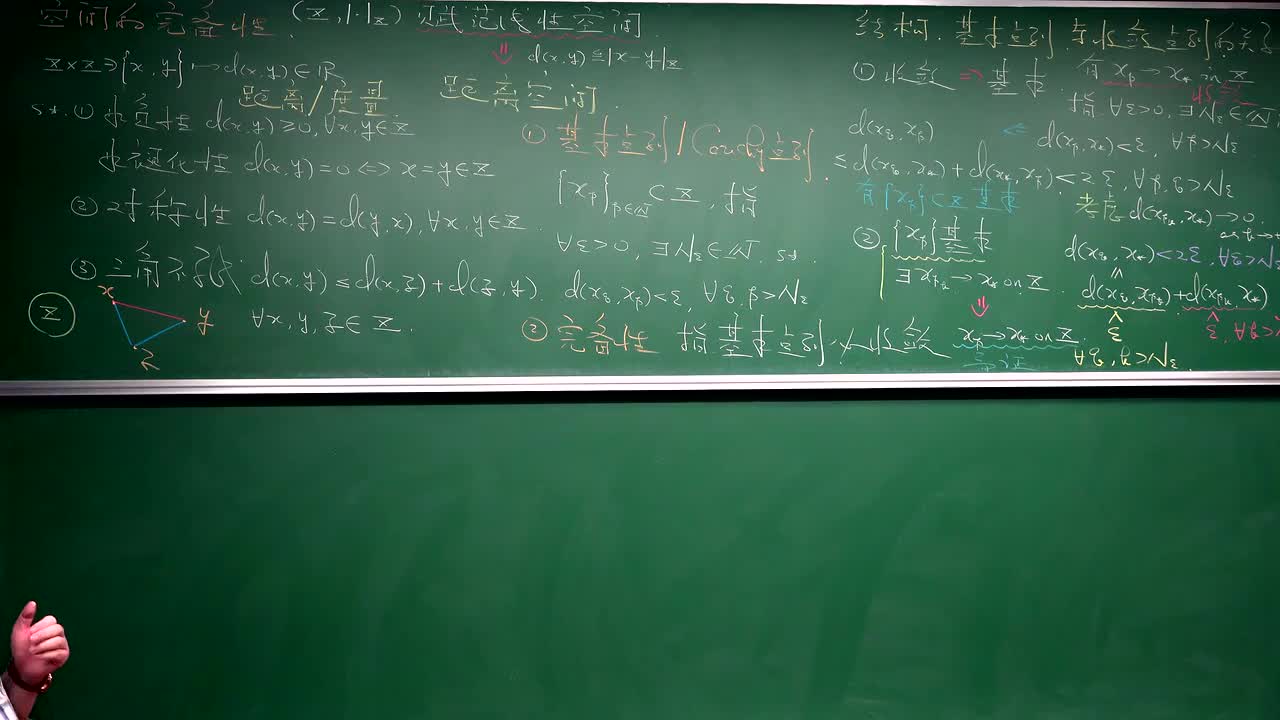 空间的完备性. (X, |·|_X) 赋范线性空间.
⇓ d(x,y) ≜ |x-y|_X
X×X∋{x,y} ↦ d(x,y)∈ℝ
距离/度量
距离空间.
s.t. ① 非负性 d(x,y)≥0, ∀x,y∈X
非退化性 d(x,y)=0 ⟺ x=y∈X
② 对称性 d(x,y)=d(y,x), ∀x,y∈X.
③ 三角不等式 d(x,y)≤d(x,z)+d(z,y).
∀x,y,z∈X.
X
x
y
z
① 基本点列/Cauchy点列.
{x_p}_{p∈ℕ}⊂X, 指
∀ε>0, ∃N_ε∈ℕ. s.t.
d(x_q,x_p)<ε, ∀q,p>N_ε
② 完备性 指基本点列必收敛
结构. 基本点列与收敛点列的关系
① 收敛 ⇒ 基本
有 x_p→x_* on X
收敛
指 ∀ε>0, ∃N_ε∈ℕ
d(x_p,x_*)<ε, ∀p>N_ε
d(x_q,x_p)
≤d(x_q,x_*)+d(x_*,x_p)<2ε, ∀p,q>N_ε
有{x_p}⊂X基本
② {x_p}基本
∃x_{p_k}→x_* on X
⇓
x_p→x_* on X.
考虑 d(x_{p_k},x_*)→0.
d(x_q,x_*)<2ε, ∀q>N_ε
d(x_q,x_{p_k})+d(x_{p_k},x_*)
ε
ε, ∀k>
∀q,k>N_ε.